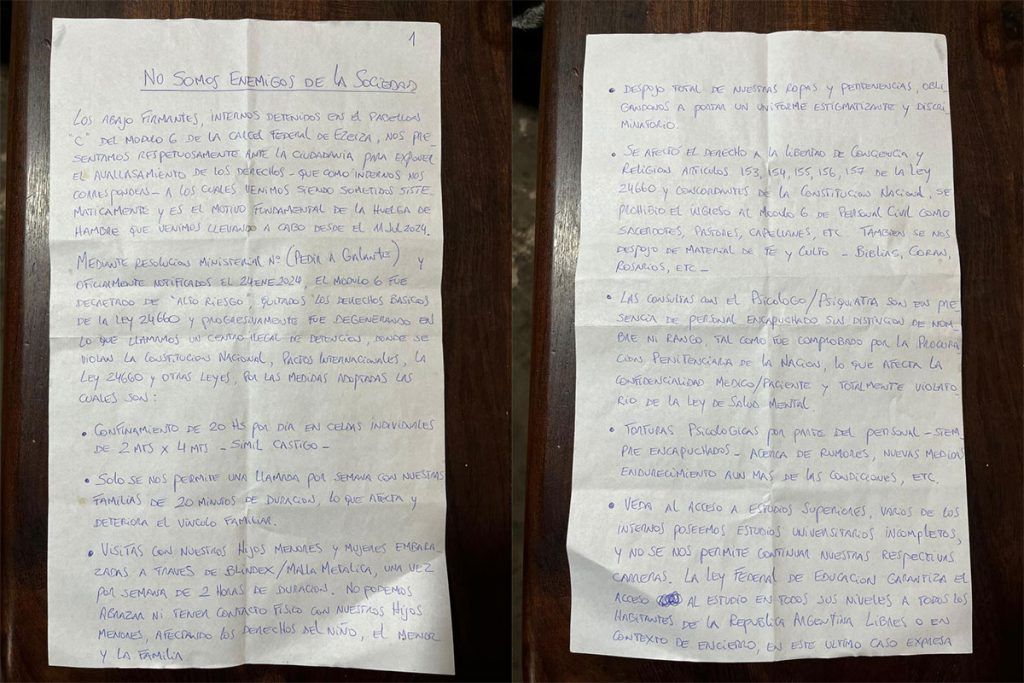 1
NO SOMOS ENEMIGOS DE LA SOCIEDAD
LOS ABAJO FIRMANTES, INTERNOS DETENIDOS EN EL PABELLON
"C" DEL MODULO 6 DE LA CARCEL FEDERAL DE EZEIZA, NOS PRE
SENTAMOS RESPETUOSAMENTE ANTE LA CIUDADANIA PARA EXPONER
EL AVALLASAMIENTO DE LOS DERECHOS - QUE COMO INTERNOS NOS
CORRESPONDEN - A LOS CUALES VENIMOS SIENDO SOMETIDOS SISTE
MATICAMENTE Y ES EL MOTIVO FUNDAMENTAL DE LA HUELGA DE
HAMBRE QUE VENIMOS LLEVANDO A CABO DESDE EL 11 JUL 2024.
MEDIANTE RESOLUCION MINISTERIAL Nº (PEDIR A GALANTE) Y
OFICIALMENTE NOTIFICADOS EL 24 ENE 2024, EL MODULO 6 FUE
DECRETADO DE "ALTO RIESGO", QUITADOS LOS DERECHOS BASICOS
DE LA LEY 24660 Y PROGRESIVAMENTE FUE DEGENERANDO EN
LO QUE LLAMAMOS UN CENTRO ILEGAL DE DETENCION, DONDE SE
VIOLAN LA CONSTITUCION NACIONAL, PACTOS INTERNACIONALES, LA
LEY 24660 Y OTRAS LEYES, POR LAS MEDIDAS ADOPTADAS LAS
CUALES SON:
• CONFINAMIENTO DE 20 HS POR DIA EN CELDAS INDIVIDUALES
DE 2 MTS X 4 MTS - SIMIL CASTIGO -
• SOLO SE NOS PERMITE UNA LLAMADA POR SEMANA CON NUESTRAS
FAMILIAS DE 20 MINUTOS DE DURACION, LO QUE AFECTA Y
DETERIORA EL VINCULO FAMILIAR.
• VISITAS CON NUESTROS HIJOS MENORES Y MUJERES EMBARA
ZADAS A TRAVES DE BLINDEX/MALLA METALICA, UNA VEZ
POR SEMANA DE 2 HORAS DE DURACION. NO PODEMOS
ABRAZAR NI TENER CONTACTO FISICO CON NUESTROS HIJOS
MENORES, AFECTANDO LOS DERECHOS DEL NIÑO, EL MENOR
Y LA FAMILIA
• DESPOJO TOTAL DE NUESTRAS ROPAS Y PERTENENCIAS, OBLI
GANDONOS A PORTAR UN UNIFORME ESTIGMATIZANTE Y DISCRI
MINATORIO.
• SE AFECTÓ EL DERECHO A LA LIBERTAD DE CONCIENCIA Y
RELIGION ARTICULOS 153, 154, 155, 156, 157 DE LA LEY
24660 Y CONCORDANTES DE LA CONSTITUCION NACIONAL, SE
PROHIBIO EL INGRESO AL MODULO 6 DE PERSONAL CIVIL COMO
SACERDOTES, PASTORES, CAPELLANES, ETC. TAMBIEN SE NOS
DESPOJO DE MATERIAL DE FE Y CULTO - BIBLIAS, CORAN,
ROSARIOS, ETC -
• LAS CONSULTAS CON EL PSICOLOGO/PSIQUIATRA SON EN PRE
SENCIA DE PERSONAL ENCAPUCHADO SIN DISTINCION DE NOM
BRE NI RANGO, TAL COMO FUE COMPROBADO POR LA PROCURA
CION PENITENCIARIA DE LA NACION, LO QUE AFECTA LA
CONFIDENCIALIDAD MEDICO/PACIENTE Y TOTALMENTE VIOLATO
RIO DE LA LEY DE SALUD MENTAL.
• TORTURAS PSICOLOGICAS POR PARTE DEL PERSONAL - SIEM
PRE ENCAPUCHADOS - ACERCA DE RUMORES, NUEVAS MEDIDAS
ENDURECIMIENTO AUN MAS DE LAS CONDICIONES, ETC.
• VEDA AL ACCESO A ESTUDIOS SUPERIORES, VARIOS DE LOS
INTERNOS POSEEMOS ESTUDIOS UNIVERSITARIOS INCOMPLETOS,
Y NO SE NOS PERMITE CONTINUAR NUESTRAS RESPECTIVAS
CARRERAS. LA LEY FEDERAL DE EDUCACION GARANTIZA EL
ACCESO AL ESTUDIO EN TODOS SUS NIVELES A TODOS LOS
HABITANTES DE LA REPUBLICA ARGENTINA LIBRES O EN
CONTEXTO DE ENCIERRO, EN ESTE ULTIMO CASO EXPRESA